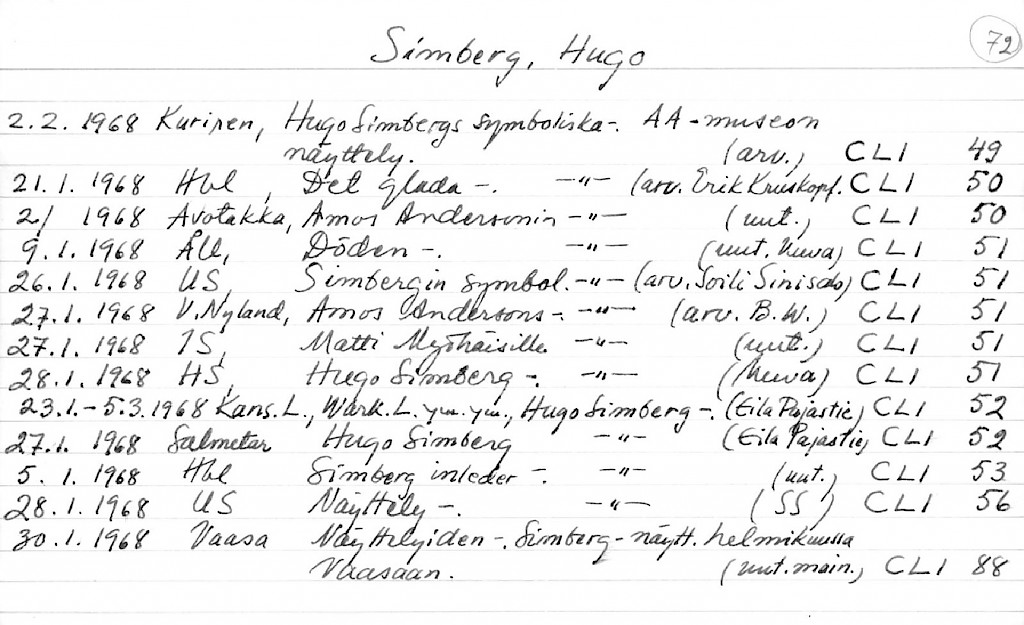 72
Simberg, Hugo
2.2. 1968 Kurinen, Hugo Simbergs symboliska-. AA-museon
näyttely. (arv.) CLI 49
21.1. 1968 Hbl, Det glada -. -"- (arv. Erik Kruskopf. CLI 50
2/ 1968 Avotakka, Amos Andersonin -"- (uut.) CLI 50
9.1. 1968 ÅU, Döden -. -"- (uut. kuva) CLI 51
26.1. 1968 US, Simbergin symbol. -"- (arv. Soili Sinisalo) CLI 51
27.1. 1968 V. Nyland, Amos Andersons -. -"- (arv. B.W.) CLI 51
27.1. 1968 IS, Matti Myöhäisille -"- (uut.) CLI 51
28.1. 1968 HS, Hugo Simberg -. -"- (kuva) CLI 51
23.1.-5.3.1968 Kans.L., Wark.L. ym. ym., Hugo Simberg -. (Eila Pajastie) CLI 52
27.1. 1968 Salmetar Hugo Simberg -"- (Eila Pajastie) CLI 52
5. 1. 1968 Hbl Simberg inleder -. -"- (uut.) CLI 53
28.1. 1968 US Näyttely -. -"- (SS) CLI 56
30.1. 1968 Vaasa Näyttelyiden -. Simberg-näytt. helmikuussa
Vaasaan. (uut. main.) CLI 88